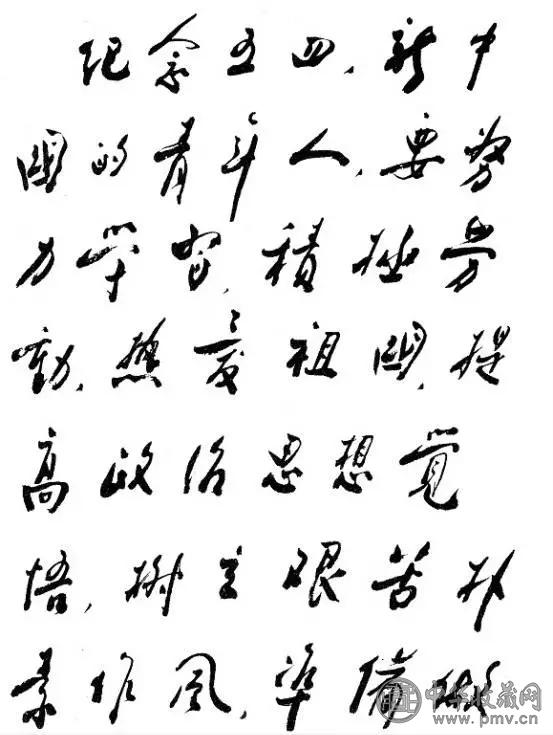 纪念五四，新中
國的青年人，要努
力学習，積極劳
動，热爱祖國，提
高政治思想覺
悟，樹立艰苦朴
素作风，準備做
中华收藏网
www.pmv.cn